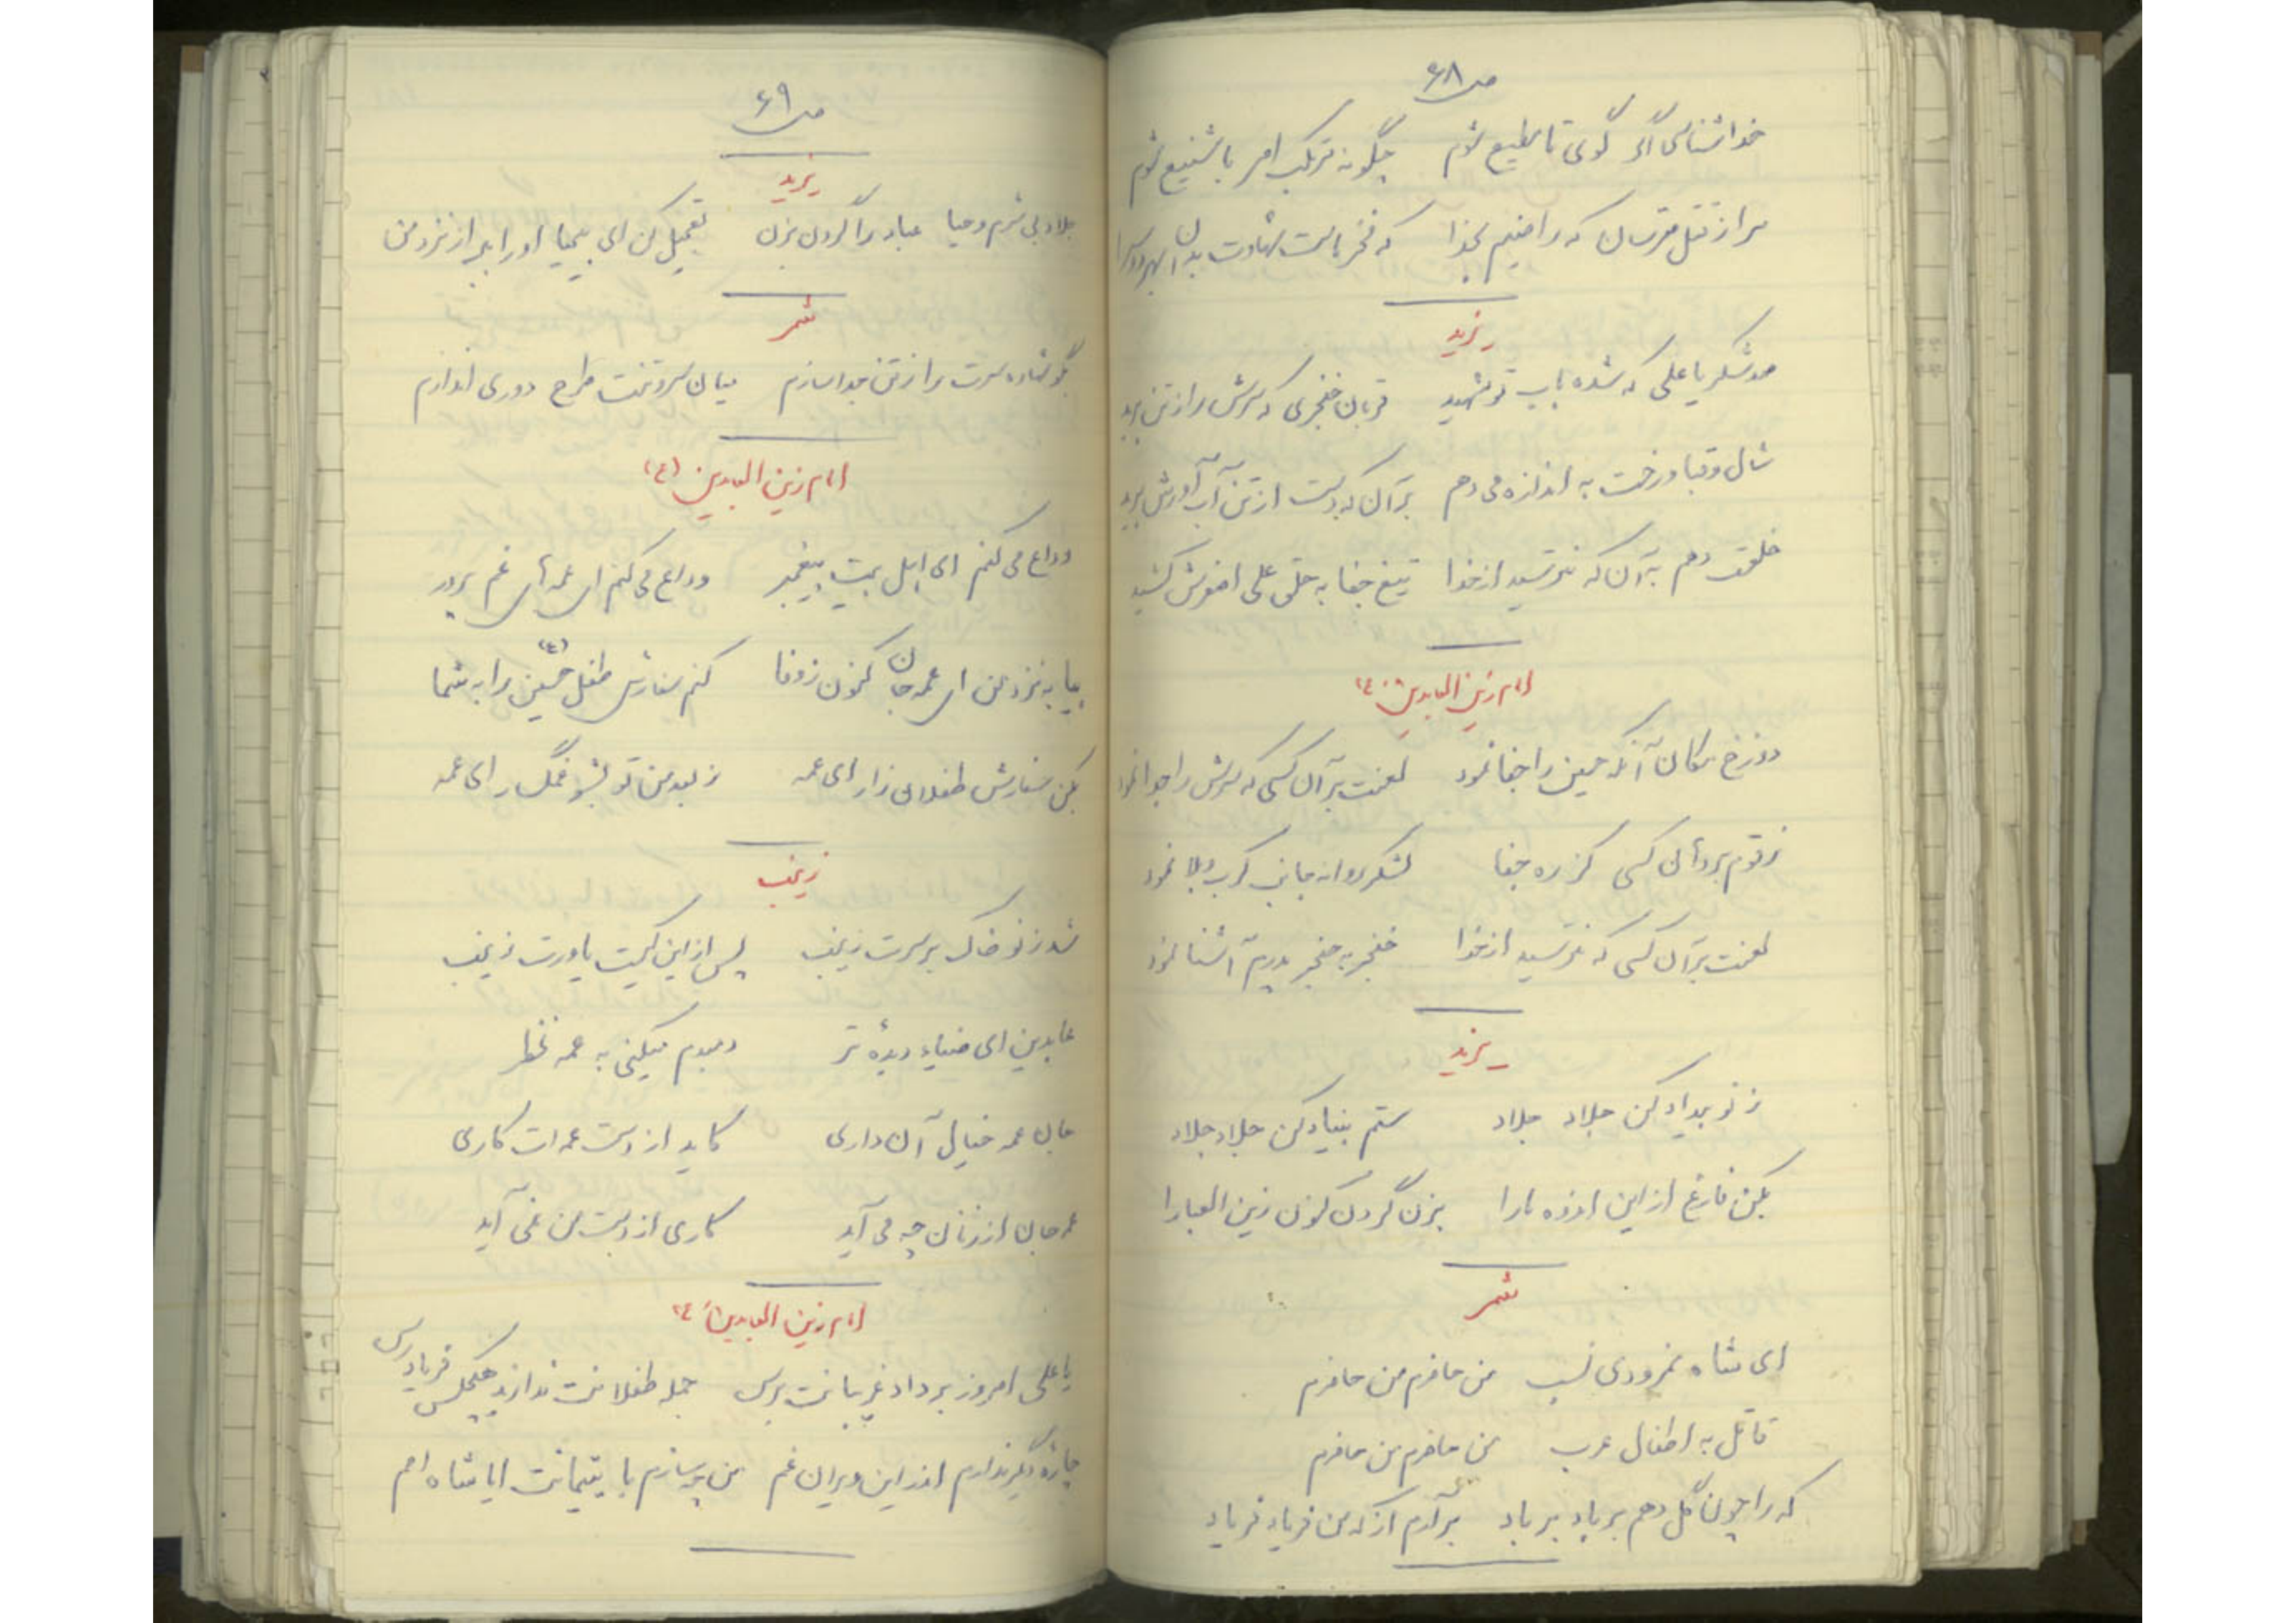 ص ۶۸
خداشناس اگر گوئی تا مطیع شوم چگونه مرتکب امر با شنیع شوم
مرا ز قتل مترسان که راضیم بخدا که فخر ماست شهادت بدان
یزید
صد شکر یا علی که شده باب تو شهید قربان خنجری که سرش را ز تن برید
شال و قبا و رخت به اندازه می دهم بر آن که دست از تن آب آورش برید
خلعت دهم به آن که نترسید از خدا تیغ جفا به حلق علی اصغرش کشید
امام زین العابدین ع
دوزخ مکان آنکه حسین را جفا نمود لعنت بر آن کسی که سرش را جدا نمود
زقوم بر دهان کسی کز ره جفا لشکر روانه جانب کرب و بلا نمود
لعنت بر آن کسی که نترسید از خدا خنجر به حنجر پدرم آشنا نمود
یزید
ز نو بیداد کن جلاد جلاد ستم بنیاد کن جلاد جلاد
بکن فارغ از این اندوه ما را بزن گردن کنون زین العبا را
شمر
ای شاه نمرودی نسب من حاضرم من حاضرم
قاتل به اطفال عرب من حاضرم من حاضرم
که را چون گل دهم بر باد بر باد برآرم از که من فریاد فریاد
ص ۶۹
یزید
جلاد بی شرم و حیا عباد را گردن بزن تعجیل کن ای بیحیا او را ببر از نزد من
شمر
بگو شهاده سرت را ز تن جدا سازم میان سر و تنت طرح دوری اندازم
امام زین العابدین (ع)
وداع می کنم ای اهل بیت پیغمبر وداع می کنم ای عمه های غم پرور
بیا به نزد من ای عمه جان کنون ز وفا کنم سفارش طفل حسین (ع) را به شما
بکن سفارش طفلان زار ای عمه ز بعد من تو بشو غمگسار ای عمه
زینب
شد ز نو خاک بر سرت زینب پس از این کیست یاورت زینب
عابدین ای ضیاء دیدهٔ تر دمبدم میکنی به عمه نظر
جان عمه خیال آن داری کاید از دست عمه ات کاری
عمه جان از زنان چه می آید کاری از دست من نمی آید
امام زین العابدین ع
یا علی امروز بر داد غریبانت برس جمله طفلانت ندارند هیچکس فریادرس
چاره دیگر ندارم اندر این ویران غم من چه سازم با یتیمانت ایا شاه امم